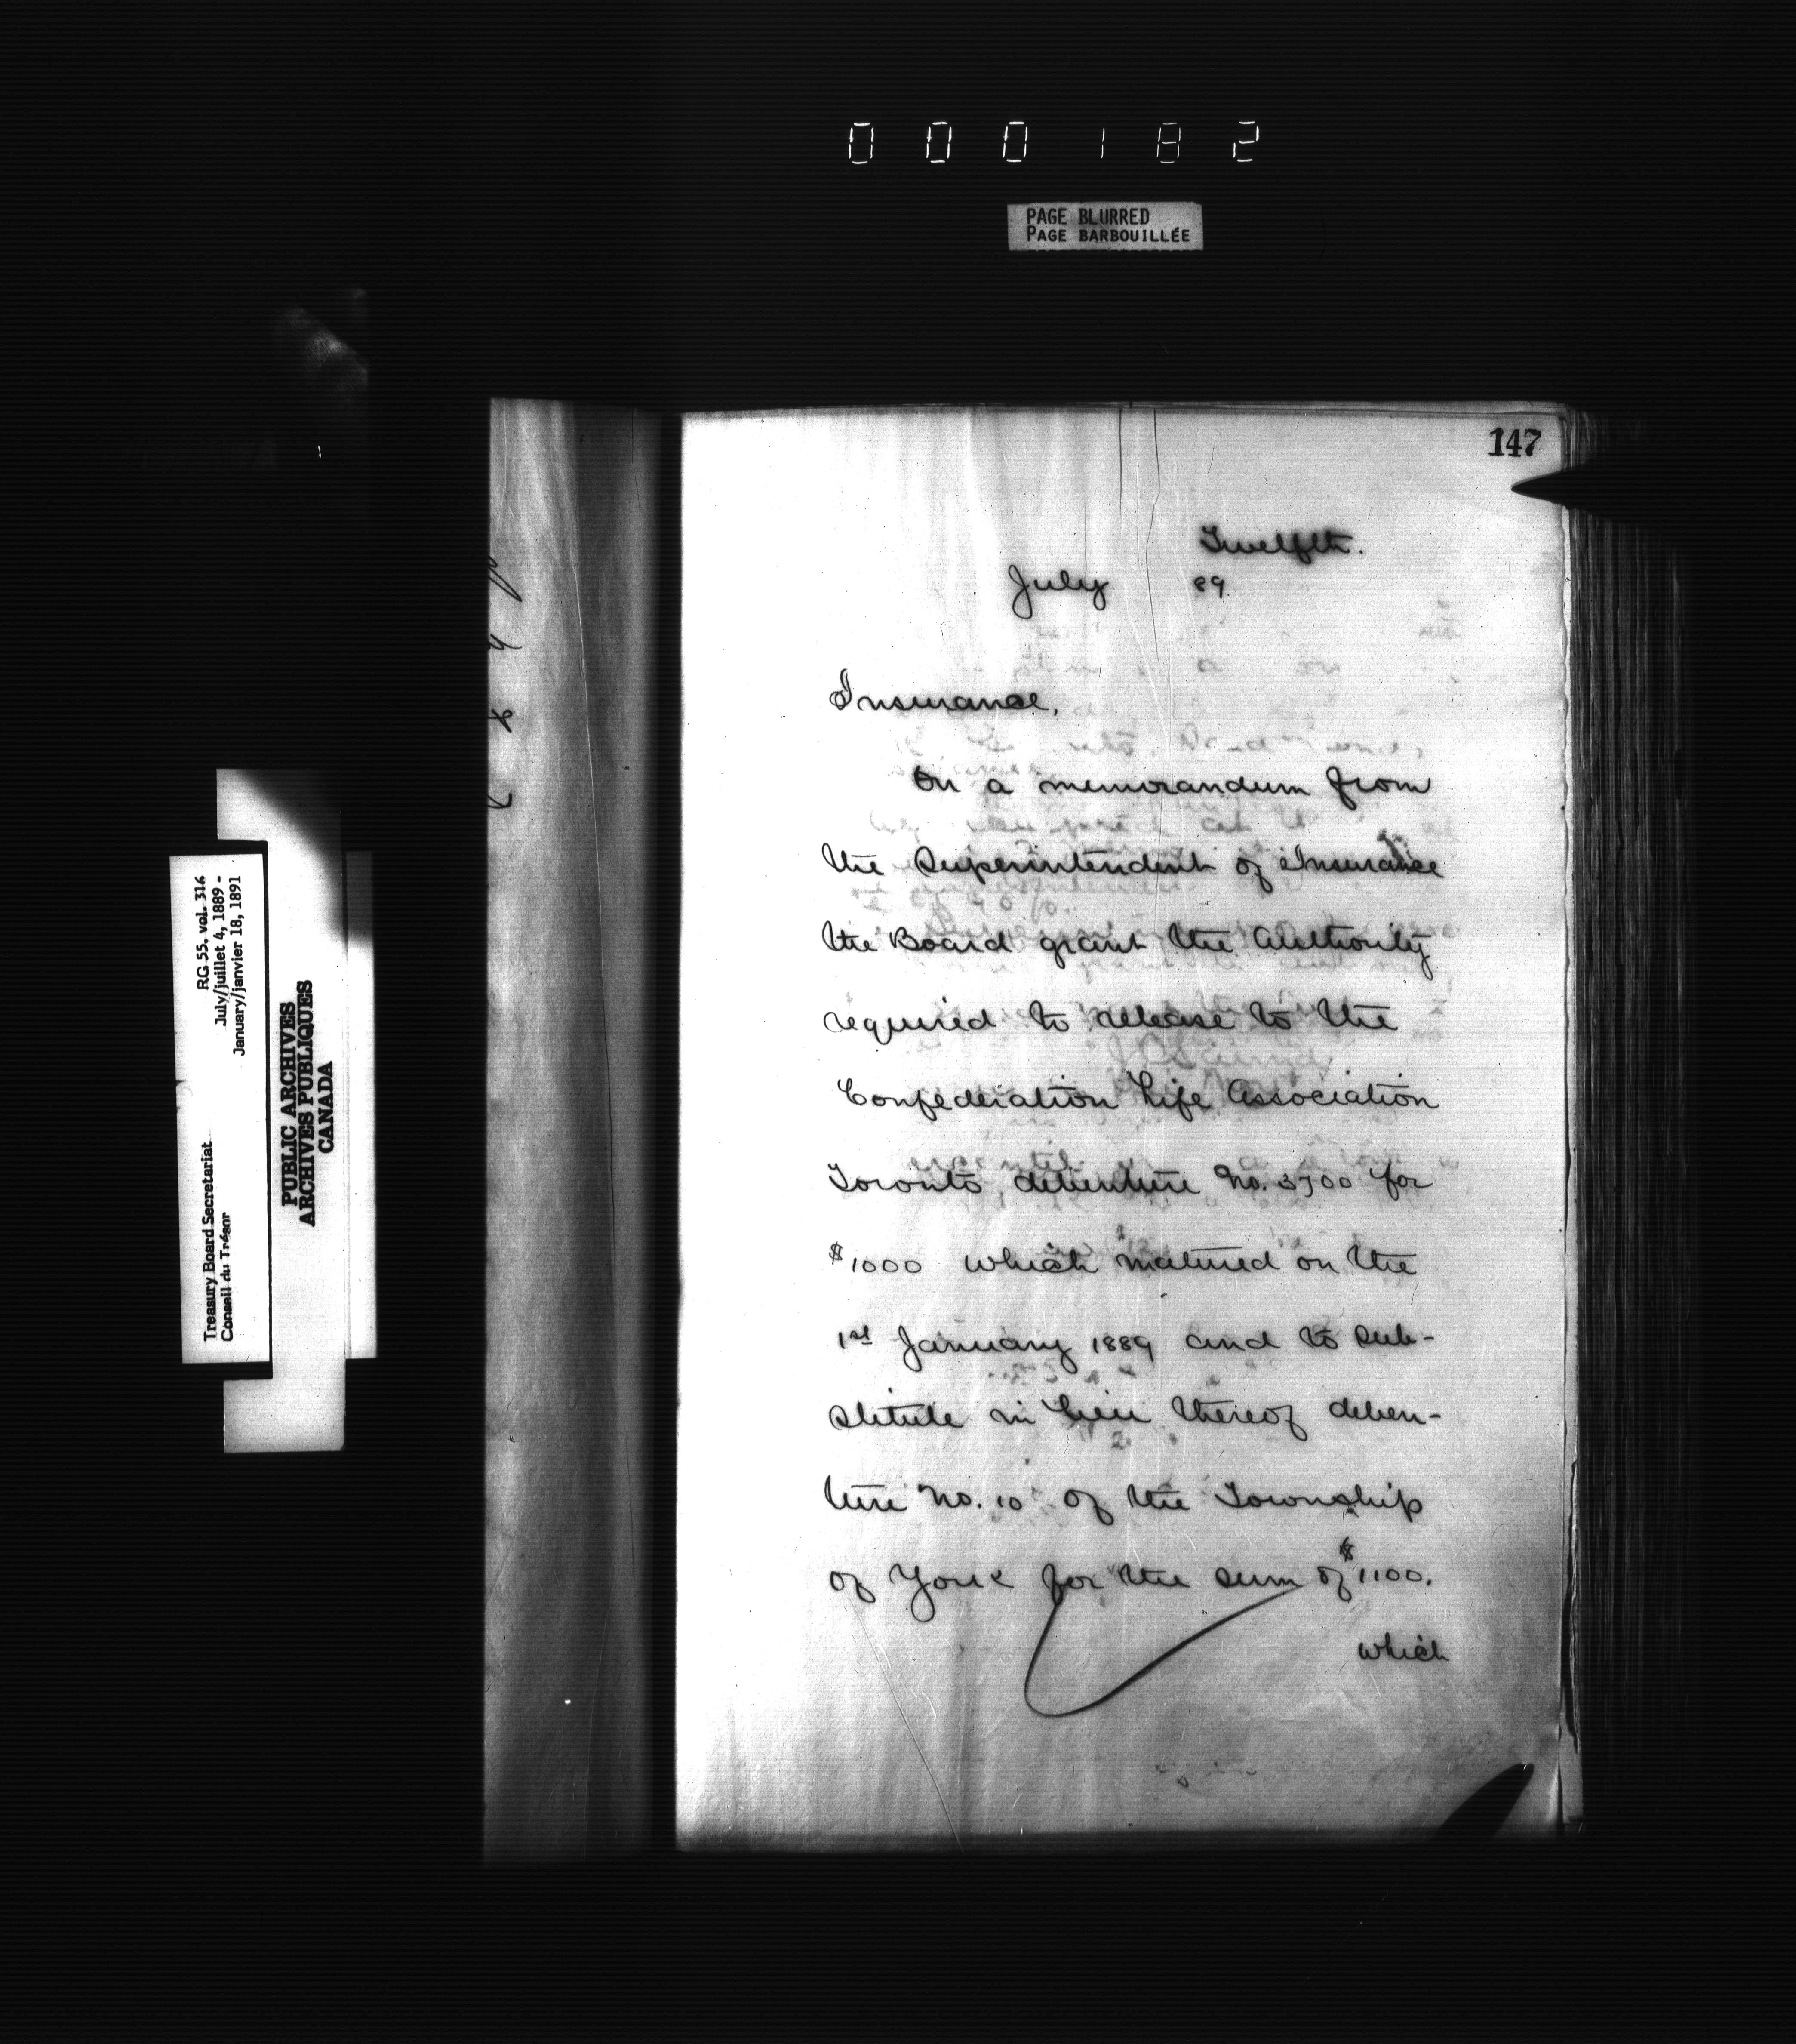 000182
PAGE BLURRED
PAGE BARBOUILLÉE
147
Twelfth.
July 89
Insurance.
On a memorandum from
the Superintendent of Insurance
the Board grant the Authority
required to release to the
Confederation Life Association
Toronto debenture No. for
$1000 which matured on the
1st January 1889 and to sub-
stitute in lieu thereof deben-
ture No. 10 of the Township
of York for the sum of $1100.
which
Treasury Board Secretariat
Conseil du Trésor
RG 55, vol. 316
July/juillet 4, 1889 -
January/janvier 18, 1891
PUBLIC ARCHIVES
ARCHIVES PUBLIQUES
CANADA